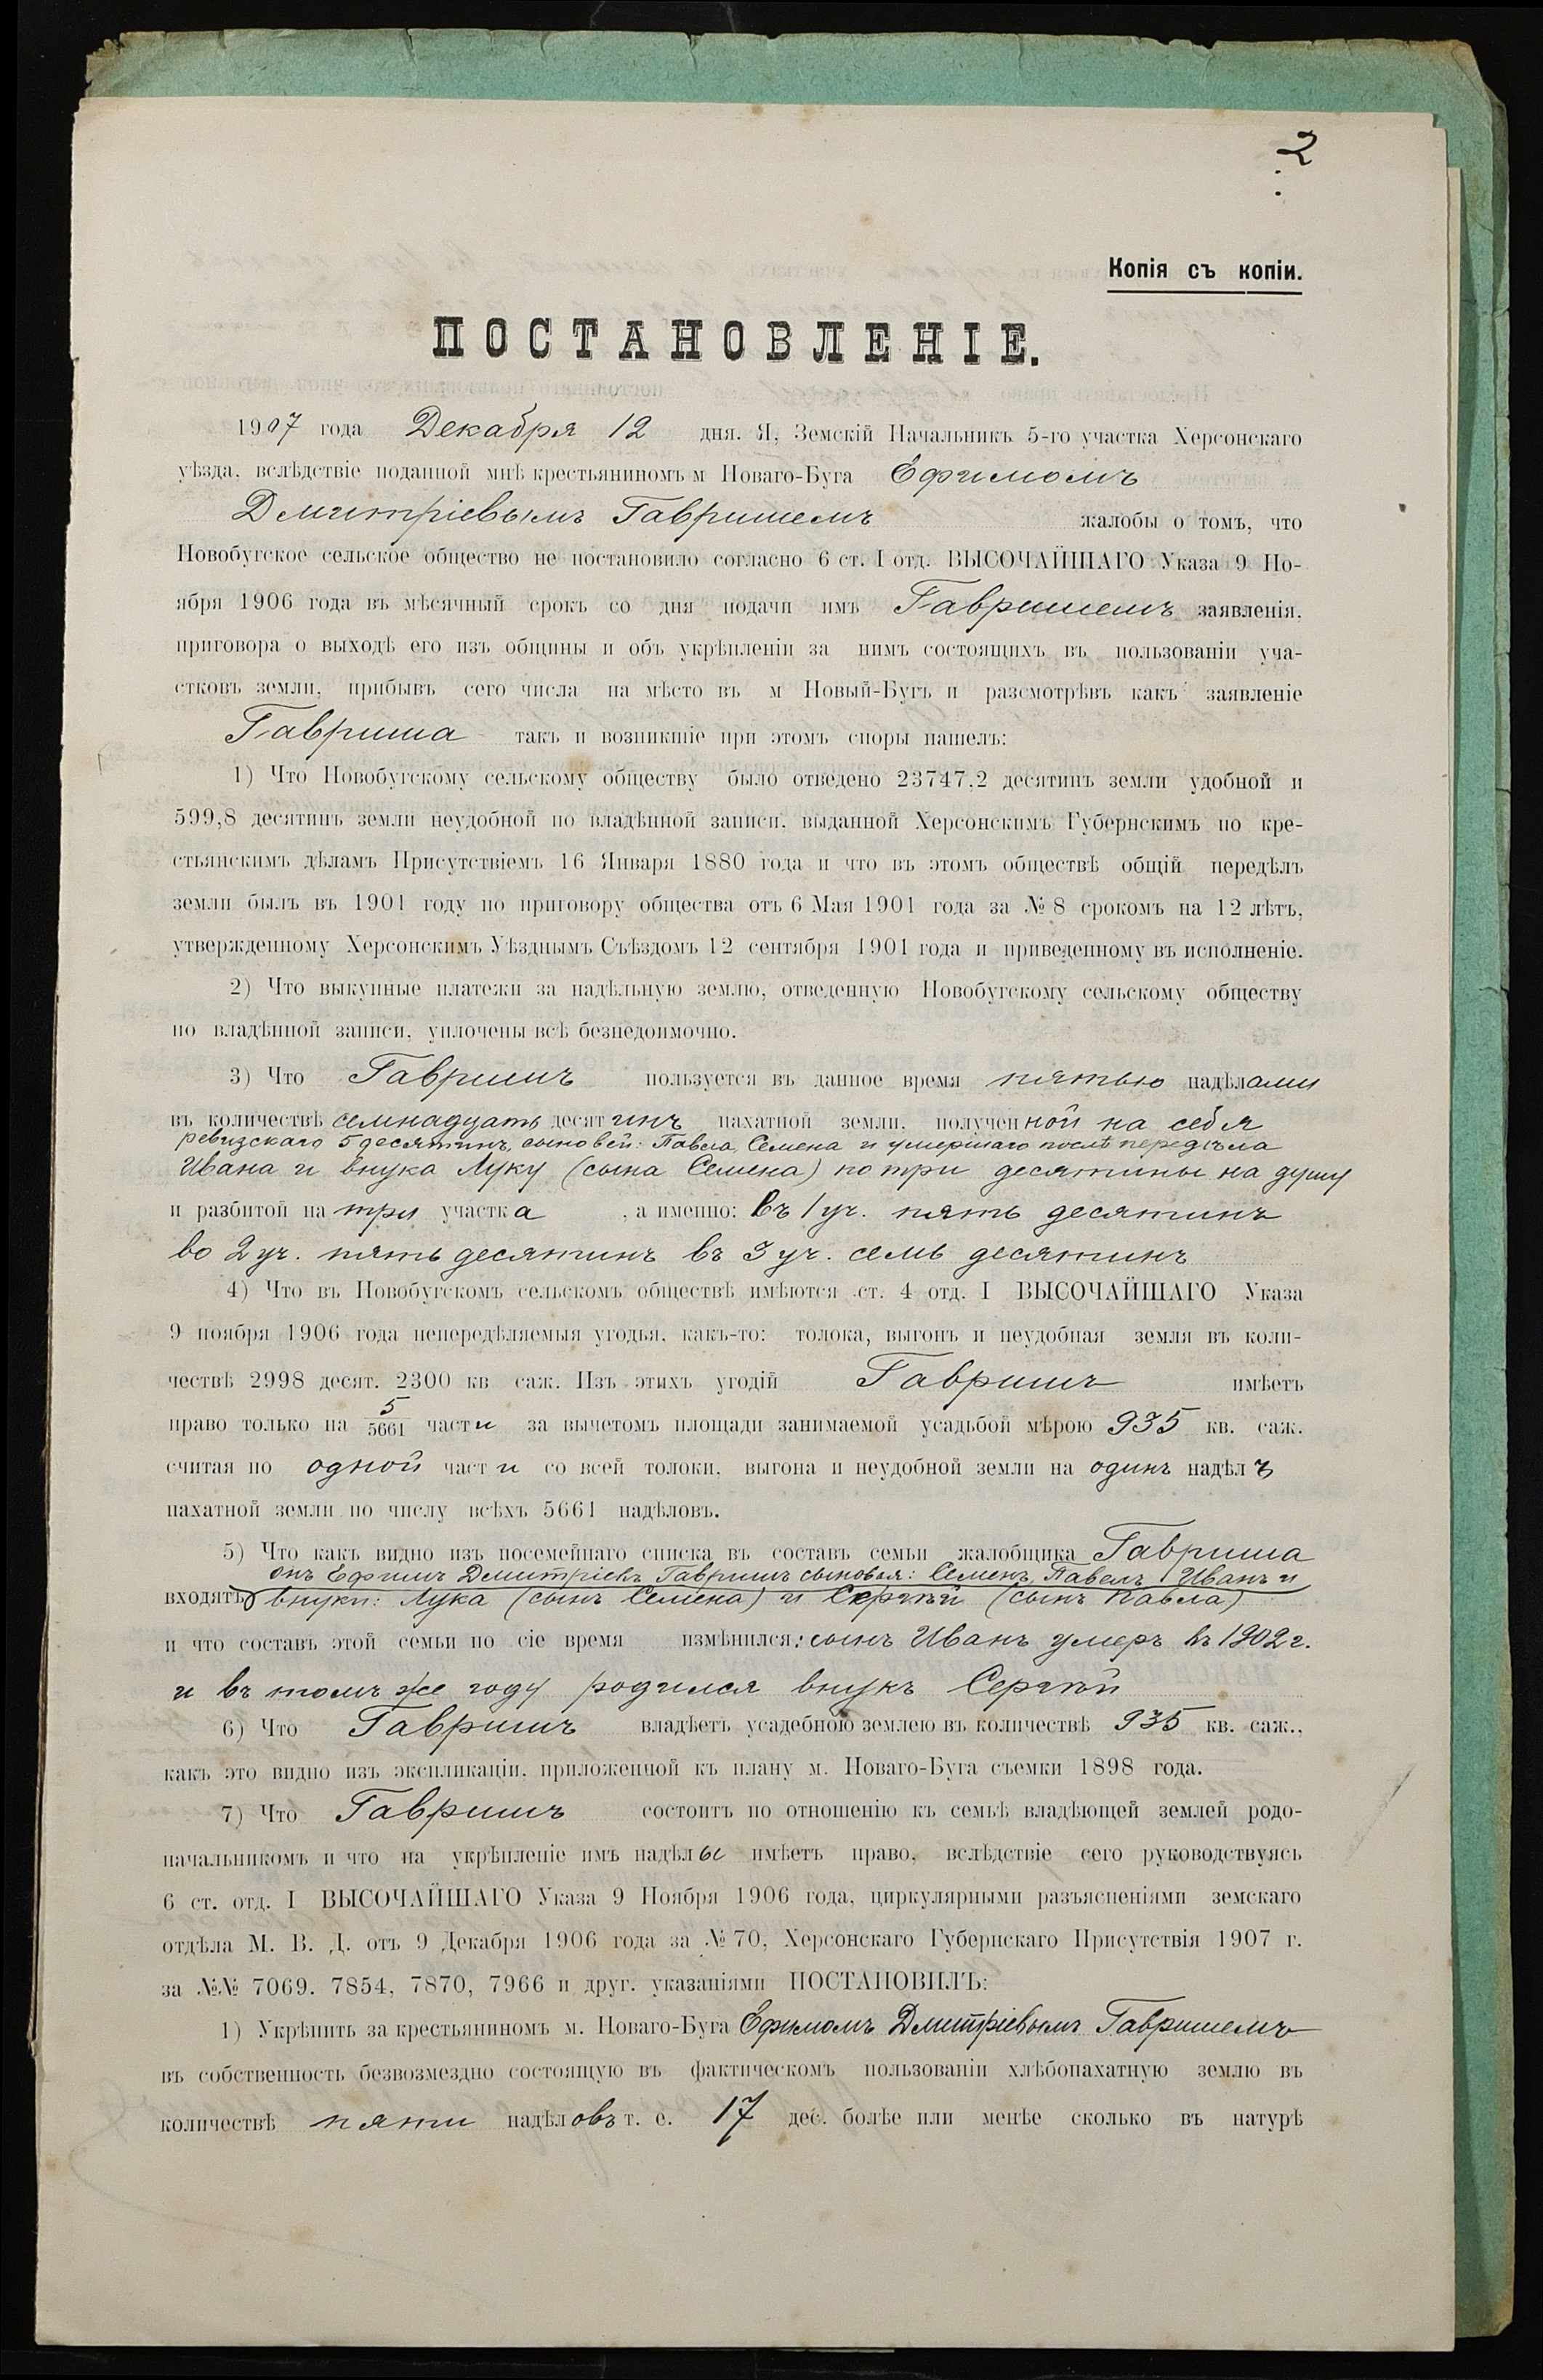 2
Копія съ копіи.
ПОСТАНОВЛЕНІЕ.
1907 года Декабря 12 дня. Я, Земскій Начальникъ 5-го участка Херсонскаго
уѣзда, вслѣдствіе поданной мнѣ крестьяниномъ м Новаго-Буга Ефимомъ
Дмитріевымъ Гавришемъ жалобы о томъ, что
Новобугское сельское общество не постановило согласно 6 ст. I отд. ВЫСОЧАЙШАГО Указа 9 Но-
ября 1906 года въ мѣсячный срокъ со дня подачи имъ Гавришемъ заявленія.
приговора о выходѣ его изъ общины и объ укрѣпленіи за нимъ состоящихъ въ пользованіи уча-
стковъ земли, прибывъ сего числа на мѣсто въ м Новый-Бугъ и разсмотрѣвъ какъ заявленіе
Гавриша такъ и возникшіе при этомъ споры нашелъ:
1) Что Новобугскому сельскому обществу было отведено 23747,2 десятинъ земли удобной и
599,8 десятинъ земли неудобной по владѣнной записи, выданной Херсонскимъ Губернскимъ по кре-
стьянскимъ дѣламъ Присутствіемъ 16 Января 1880 года и что въ этомъ обществѣ общій передѣлъ
земли былъ въ 1901 году по приговору общества отъ 6 Мая 1901 года за № 8 срокомъ на 12 лѣтъ,
утвержденному Херсонскимъ Уѣзднымъ Съѣздомъ 12 сентября 1901 года и приведенному въ исполненіе.
2) Что выкупные платежи за надѣльную землю, отведенную Новобугскому сельскому обществу
по владѣнной записи, уплочены всѣ безнедоимочно.
3) Что Гавришъ пользуется въ данное время пятью надѣлами
въ количествѣ семнадцать десятинъ пахатной земли, полученной на себя
ревизскаго 5 десятинъ, сыновей: Павла, Семена и умершаго послѣ передѣла
Ивана и внука Луку (сына Семена) по три десятины на душу
и разбитой на три участка , а именно: въ 1 уч. пять десятинъ
во 2 уч. пять десятинъ въ 3 уч. семь десятинъ
4) Что въ Новобугскомъ сельскомъ обществѣ имѣются ст. 4 отд. I ВЫСОЧАЙШАГО Указа
9 ноября 1906 года непередѣляемыя угодья, какъ-то: толока, выгонъ и неудобная земля въ коли-
чествѣ 2998 десят. 2300 кв саж. Изъ этихъ угодій Гавришъ имѣетъ
право только на 5/5661 части за вычетомъ площади занимаемой усадьбой мѣрою 935 кв. саж.
считая по одной части со всей толоки, выгона и неудобной земли на одинъ надѣлъ
пахатной земли по числу всѣхъ 5661 надѣловъ.
5) Что какъ видно изъ посемейнаго списка въ составъ семьи жалобщика Гавриша
онъ Ефимъ Дмитріевъ Гавришъ сыновья: Семенъ, Павелъ, Иванъ и
входятъ внуки: Лука (сынъ Семена) и Сергѣй (сынъ Павла)
и что составъ этой семьи по сіе время измѣнился: сынъ Иванъ умеръ въ 1902 г.
и въ томъ же году родился внукъ Сергѣй
6) Что Гавришъ владѣетъ усадебною землею въ количествѣ 935 кв. саж.,
какъ это видно изъ экспликаціи, приложенной къ плану м. Новаго-Буга съемки 1898 года.
7) Что Гавришъ состоитъ по отношенію къ семьѣ владѣющей землей родо-
начальникомъ и что на укрѣпленіе имъ надѣлы имѣетъ право, вслѣдствіе сего руководствуясь
6 ст. отд. I ВЫСОЧАЙШАГО Указа 9 Ноября 1906 года, циркулярными разъясненіями земскаго
отдѣла М. В. Д. отъ 9 Декабря 1906 года за № 70, Херсонскаго Губернскаго Присутствія 1907 г.
за №№ 7069. 7854, 7870, 7966 и друг. указаніями ПОСТАНОВИЛЪ:
1) Укрѣпить за крестьяниномъ м. Новаго-Буга Ефимомъ Дмитріевымъ Гавришемъ
въ собственность безвозмездно состоящую въ фактическомъ пользованіи хлѣбопахатную землю въ
количествѣ пяти надѣловъ т. е. 17 дес. болѣе или менѣе сколько въ натурѣ